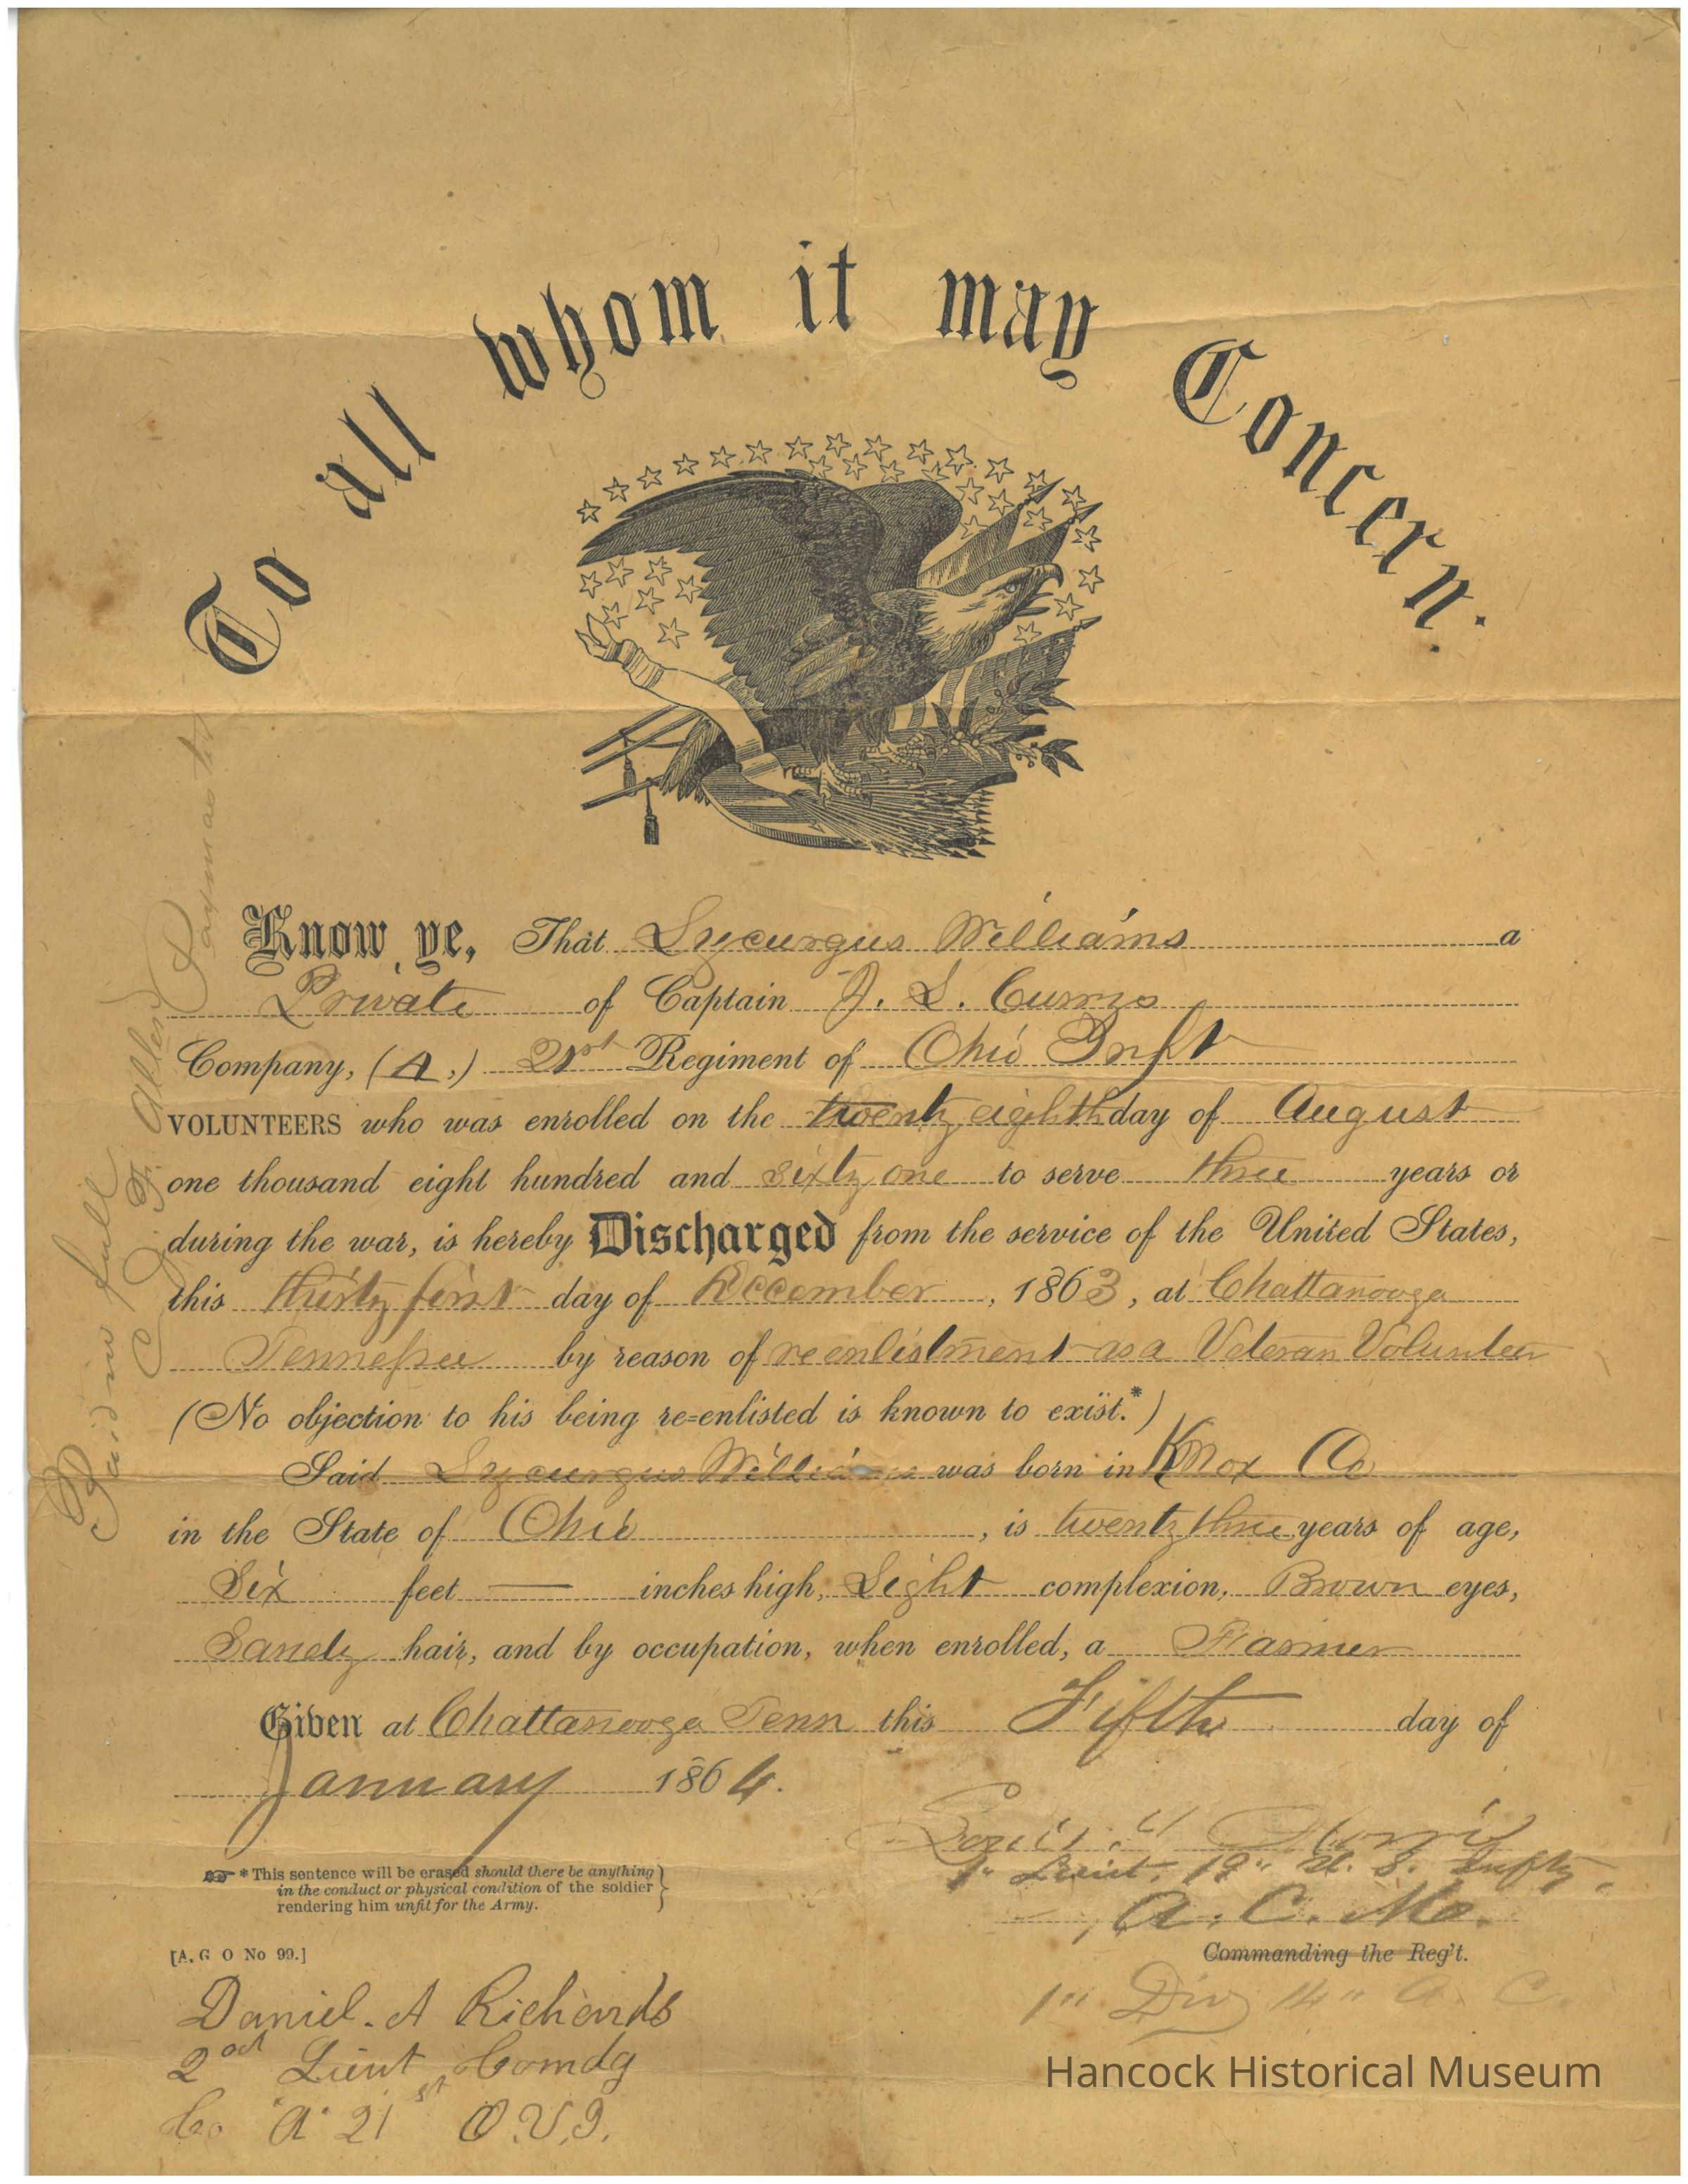 To all whom it may Concern.
Know ye, That Lycurgus Williams a
Private of Captain J. L. Curry
Company, (A,) 21st Regiment of Ohio Inft
VOLUNTEERS who was enrolled on the twenty eighth day of August
one thousand eight hundred and sixty one to serve three years or
during the war, is hereby Discharged from the service of the United States,
this thirty first day of December, 1863, at Chattanooga
Tennessee by reason of reenlistment as a Veteran Volunteer
(No objection to his being re-enlisted is known to exist.*)
Said Lycurgus Williams was born in Knox Co
in the State of Ohio, is twenty three years of age,
Six feet — inches high, Light complexion, Brown eyes,
Sandy hair, and by occupation, when enrolled, a Farmer
Given at Chattanooga Tenn this Fifth day of
January 1864.
* This sentence will be erased should there be anything
in the conduct or physical condition of the soldier
rendering him unfit for the Army.
[A. G O No 99.]
Daniel. A Richards
2nd Lieut Comdg
Co "A" 21st O.V.I.
1" Lieut. 19" U. S. Infty.
A. C. M.
Commanding the Reg't.
1" Div 14" A. C.
Paid in full
Allen
Paymaster
Hancock Historical Museum